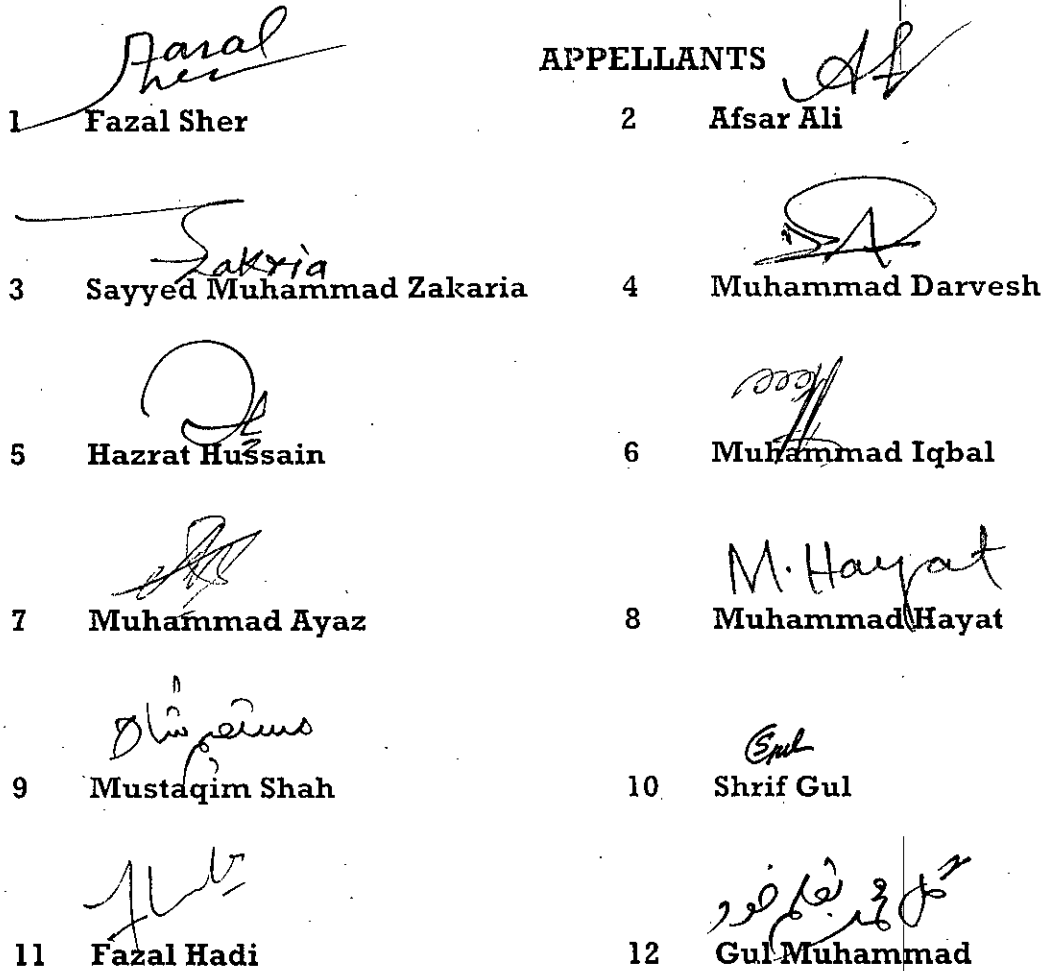 APPELLANTS
Fazal
Sher
1 Fazal Sher
2 Afsar Ali
Zakria
3 Sayyed Muhammad Zakaria
4 Muhammad Darvesh
5 Hazrat Hussain
6 Muhammad Iqbal
M. Hayat
7 Muhammad Ayaz
8 Muhammad Hayat
مستقیم شاہ
9 Mustaqim Shah
10 Shrif Gul
گل محمد بقلم خود
11 Fazal Hadi
12 Gul Muhammad